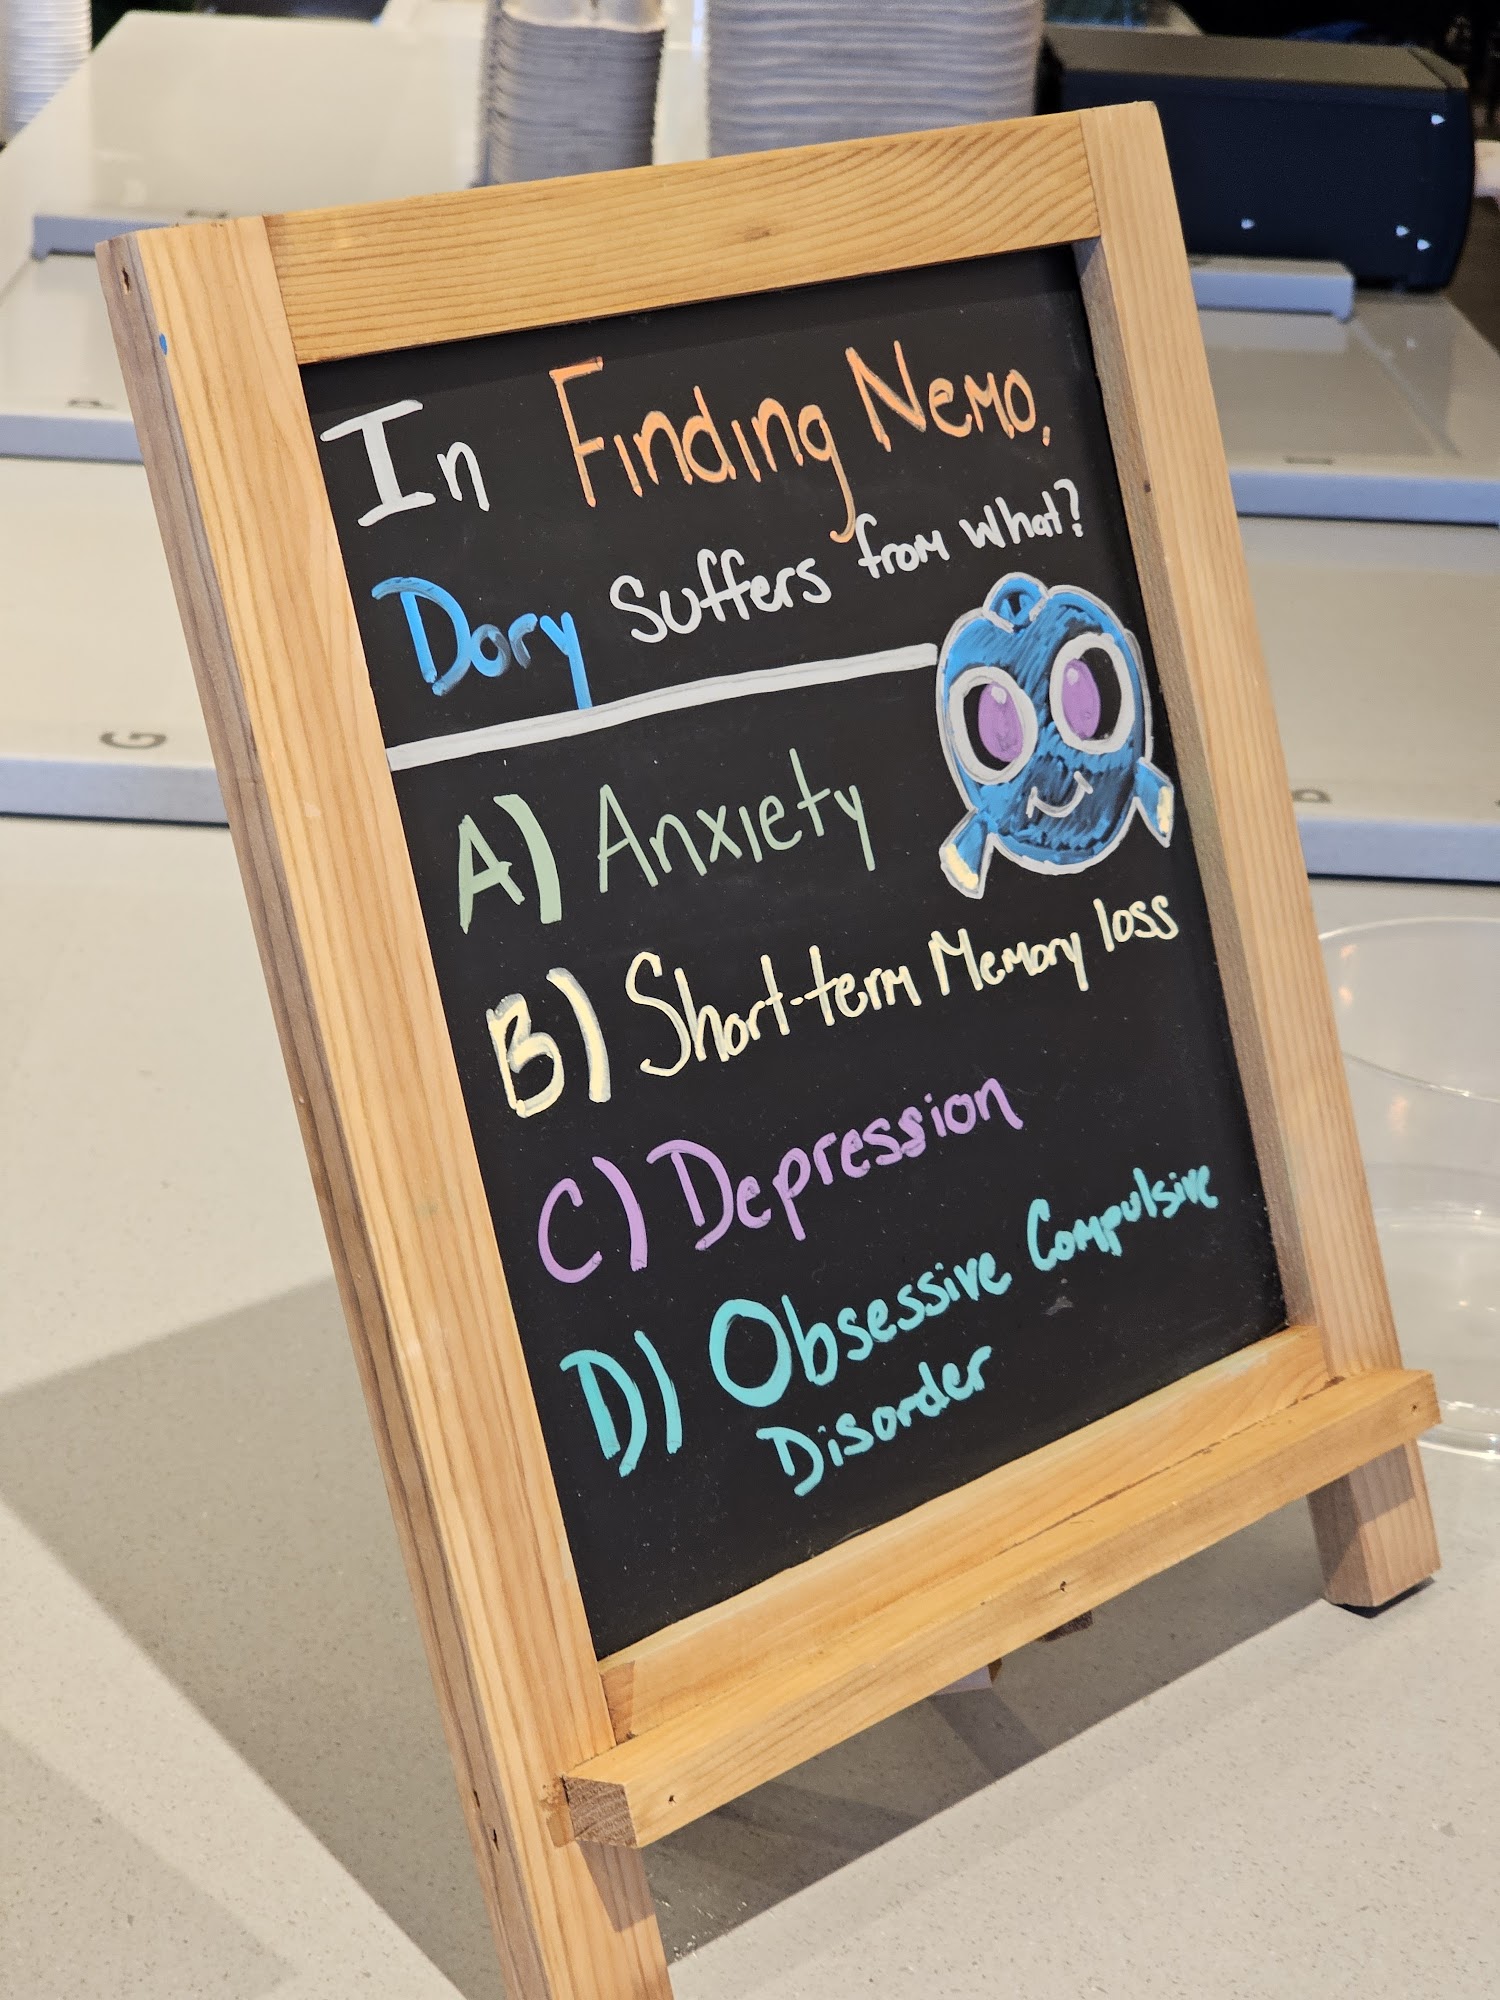 In Finding Nemo,
Dory suffers from what?
A) Anxiety
B) Short-term Memory loss
C) Depression
D) Obsessive Compulsive
Disorder
G